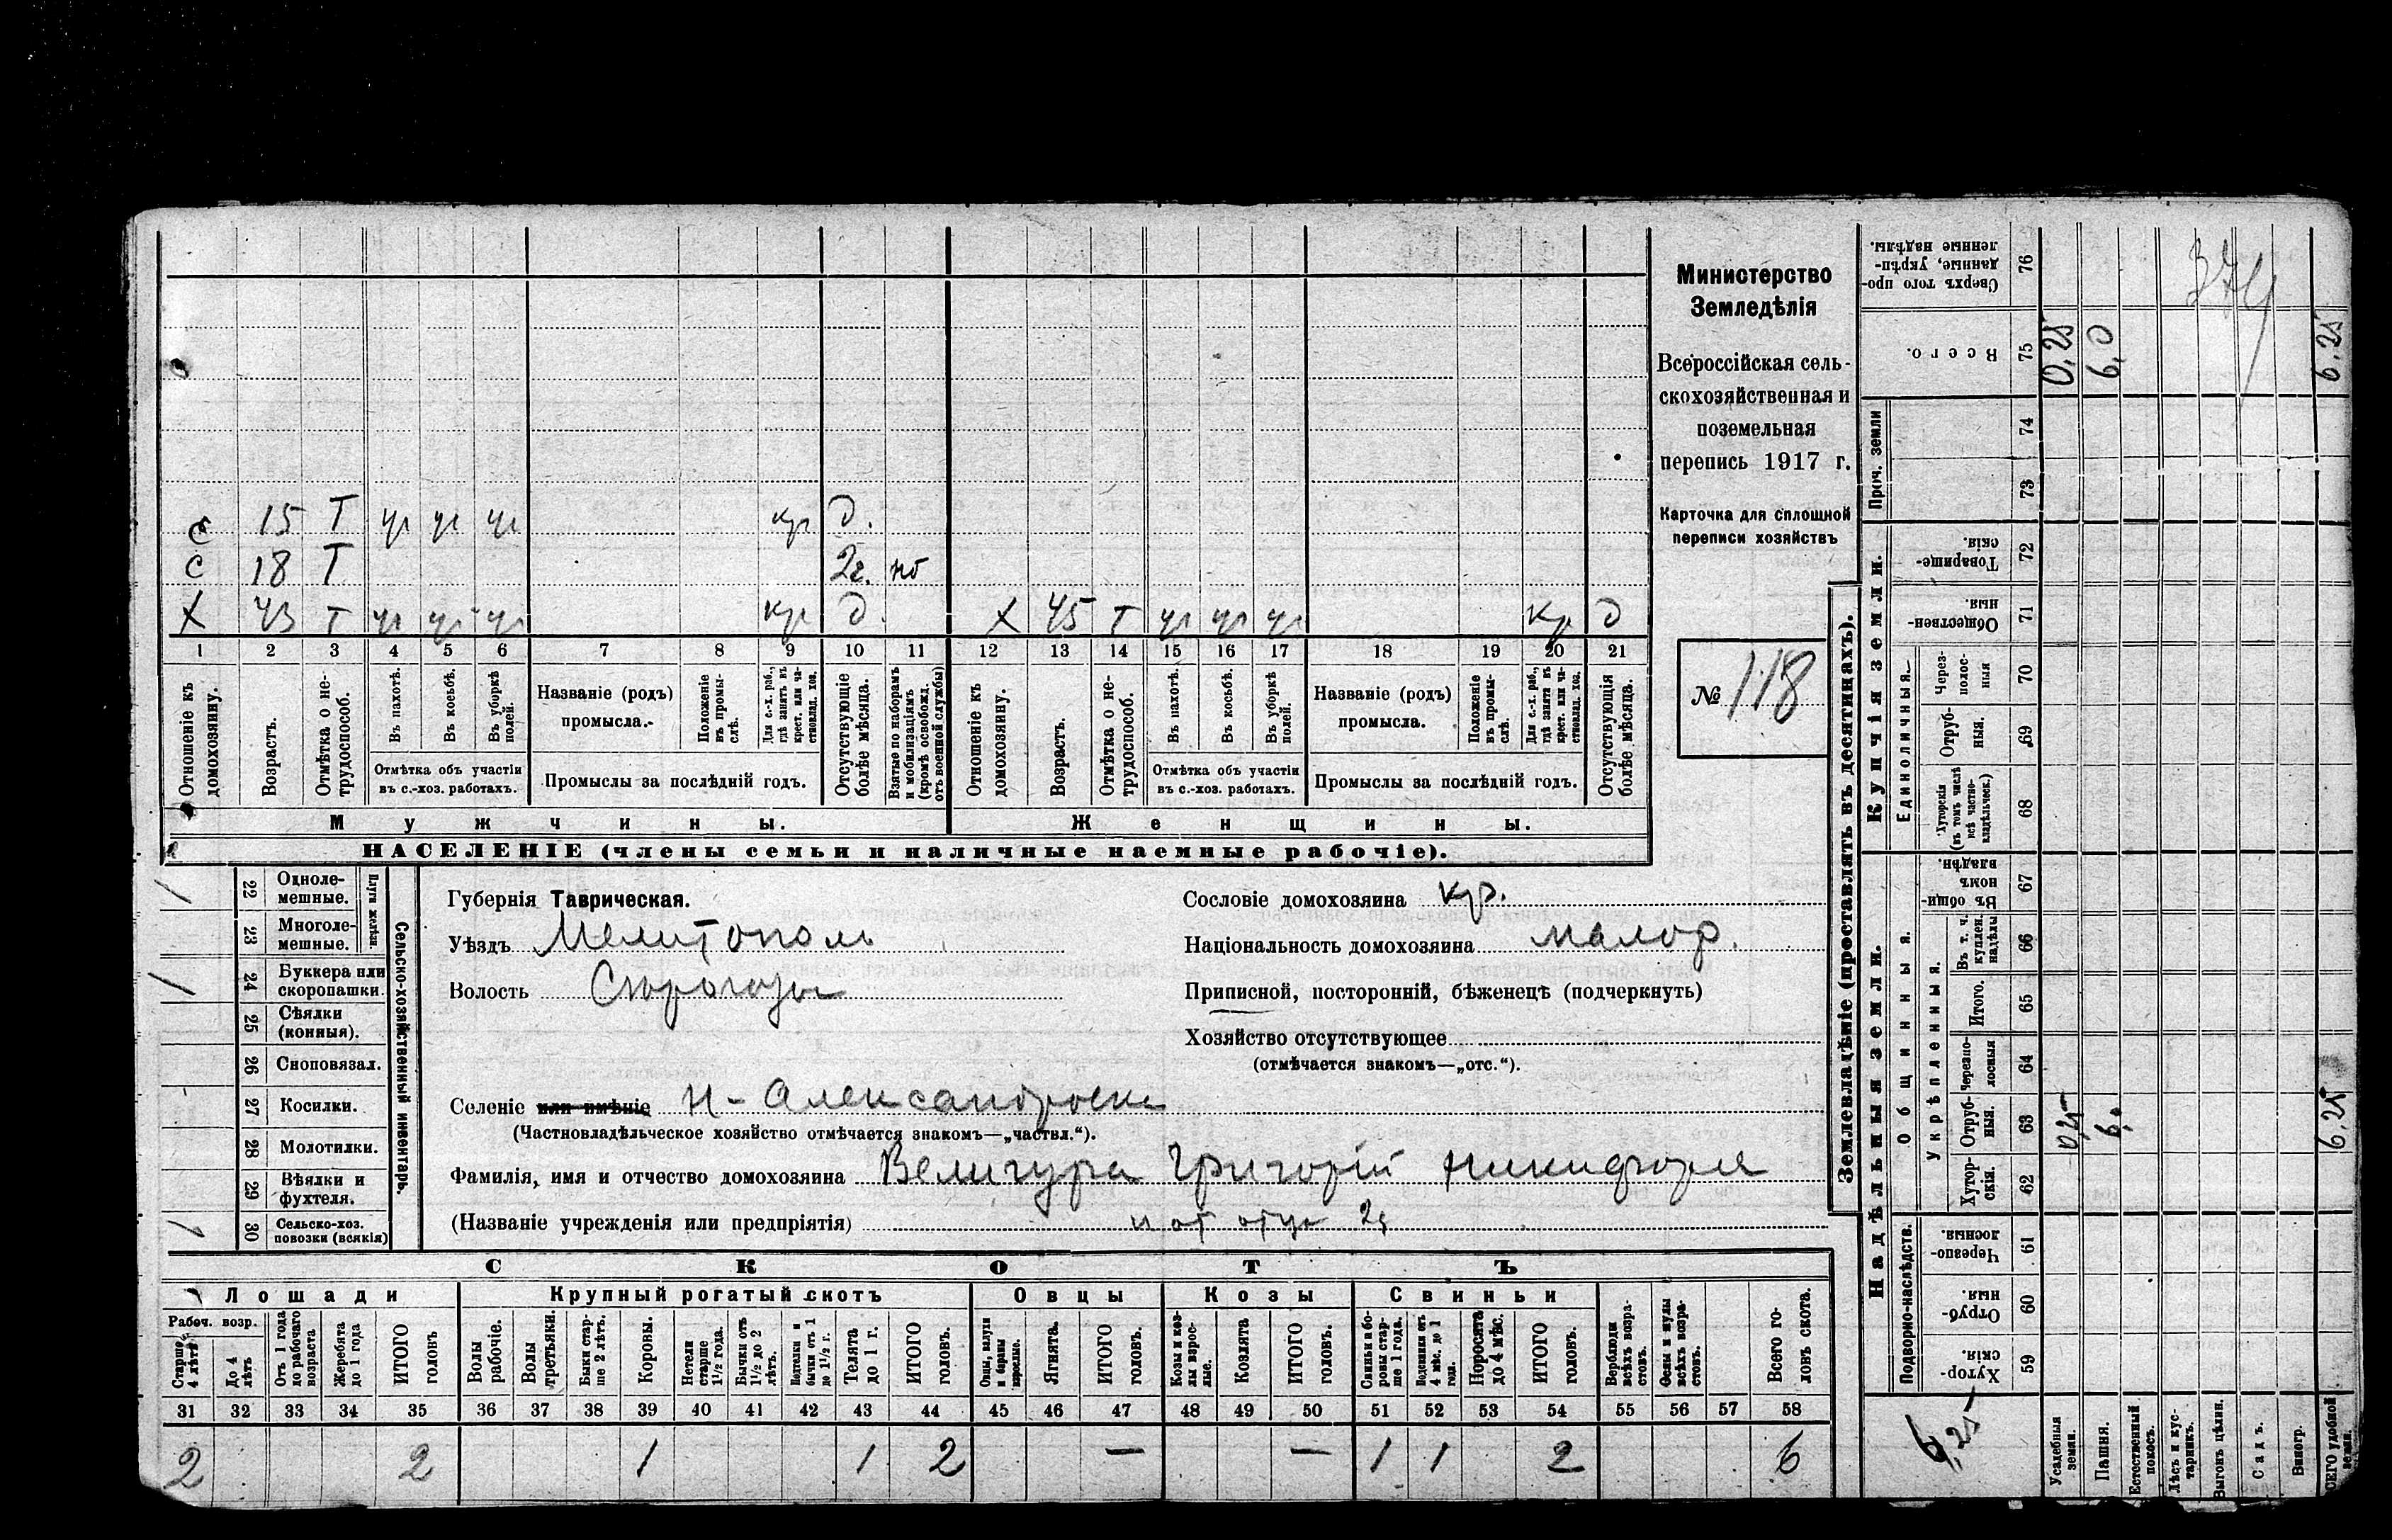 Министерство
Земледѣлія
Всероссійская сель-
скохозяйственная и
поземельная
перепись 1917 г.
Карточка для сплошной
переписи хозяйствъ
№ 118
с 15 Т уч уч уч кр д.
с 18 Т 2г. нб
х 43 т уч уч уч кр д. х 45 т уч уч уч кр д
1 2 3 4 5 6 7 8 9 10 11 12 13 14 15 16 17 18 19 20 21
Отношеніе къ домохозяину.
Возрастъ.
Отмѣтка о не-трудоспособ.
Въ пахотѣ.
Въ косьбѣ.
Въ уборкѣ полей.
Отмѣтка объ участіи
въ с.-хоз. работахъ.
Названіе (родъ)
промысла.
Положеніе въ промы-слѣ.
Для с.-х. раб., гдѣ занятъ въ крест. или ча-стновлад. хоз.
Промыслы за послѣдній годъ.
Отсутствующіе болѣе мѣсяца.
Взятые по наборамъ и мобилизаціямъ (кромѣ освобожд. отъ военной службы)
Отношеніе къ домохозяину.
Возрастъ.
Отмѣтка о не-трудоспособ.
Въ пахотѣ.
Въ косьбѣ.
Въ уборкѣ полей.
Отмѣтка объ участіи
въ с.-хоз. работахъ.
Названіе (родъ)
промысла.
Положеніе въ промы-слѣ.
Для с.-х. раб., гдѣ занята въ крест. или ча-стновлад. хоз.
Промыслы за послѣдній годъ.
Отсутствующія болѣе мѣсяца.
Мужчины. Женщины.
НАСЕЛЕНІЕ (члены семьи и наличные наемные рабочіе).
Сельско-хозяйственный инвентарь.
Плуги желѣзн.
22 Одноле-мешные.
23 Многоле-мешные.
24 Буккера или скоропашки.
25 Сѣялки (конныя).
26 Сноповязал.
27 Косилки.
28 Молотилки.
29 Вѣялки и фухтеля.
30 Сельско-хоз. повозки (всякія)
Губернія Таврическая.
Уѣздъ Мелитополь
Волость Сѣрогозы
Селеніе или имѣніе Н-Александровка
(Частновладѣльческое хозяйство отмѣчается знакомъ—„частвл.“).
Фамилія, имя и отчество домохозяина Велигура Григорій Никифоров
(Названіе учрежденія или предпріятія) и от отца 2д
Сословіе домохозяина кр.
Національность домохозяина малор.
Приписной, посторонній, бѣженецъ (подчеркнуть)
Хозяйство отсутствующее
(отмѣчается знакомъ—„отс.“).
СКОТЪ
Лошади Крупный рогатый скотъ Овцы Козы Свиньи
Рабоч. возр.
Старше 4 лѣтъ
До 4 лѣтъ
Отъ 1 года до рабочаго возраста
Жеребята до 1 года
ИТОГО головъ
Волы рабочіе.
Волы третьяки.
Быки стар-ше 2 лѣтъ.
Коровы.
Нетели старше 1½ года.
Бычки отъ 1½ до 2 лѣтъ.
Подтелки и бычки отъ 1 до 1½ г.
Телята до 1 г.
ИТОГО головъ.
Овцы, валухи и бараны взрослые.
Ягнята.
ИТОГО головъ.
Козы и коз-лы взрос-лые.
Козлята
ИТОГО головъ.
Свиньи и бо-ровы стар-ше 1 года.
Подсвинки отъ 4 мѣс. до 1 года.
Поросята до 4 мѣс.
ИТОГО головъ.
Верблюды всѣхъ возра-стовъ.
Ослы и мулы всѣхъ возра-стовъ.
Всего го-ловъ скота.
31 32 33 34 35 36 37 38 39 40 41 42 43 44 45 46 47 48 49 50 51 52 53 54 55 56 57 58
2 2 1 1 2 — — 1 1 2 6
Землевладѣніе (проставлять въ десятинахъ).
Надѣльныя земли. Купчія земли. Проч. земли
Подворно-наслѣдств.
Общинныя.
Укрѣпленныя.
Единоличныя.
59 Хутор-скія.
60 Отруб-ныя.
61 Черезпо-лосныя
62 Хутор-скія.
63 Отруб-ныя. 0,25 6,0 6,25
64 Черезпо-лосныя
65 Итого.
66 Въ т. ч. куплен. надѣлы
67 Въ общи-номъ владѣн.
68 Хуторскія (въ томъ числѣ всѣ частно-владѣльческ.)
69 Отруб-ныя.
70 Через-полос-ныя
71 Обществен-ныя.
72 Товарище-скія.
73
74
75 Всего. 0,25 6,0 6,25
76 Сверхъ того про-данные, укрѣп-ленные надѣлы.
6,25
Усадебныя земли.
Пашня.
Естественный покосъ.
Лѣсъ и кус-тарникъ.
Выгонъ цѣлин.
Садъ.
Виногр.
ВСЕГО удобной земли.